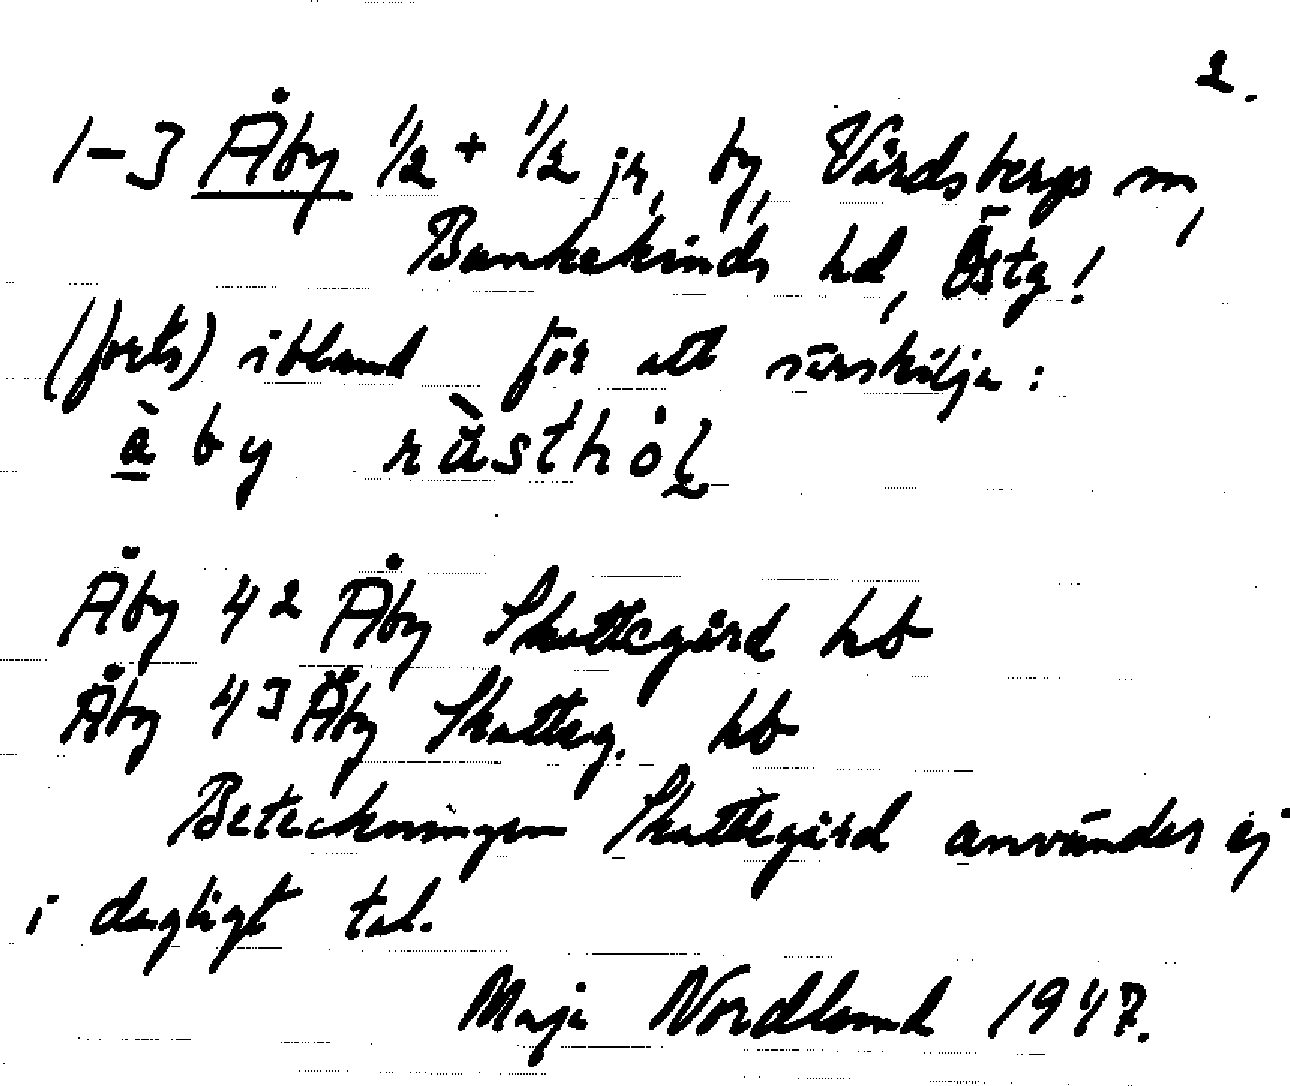 2.
1-3 Åby 1/2 + 1/2 jr, by, Vårdsbergs sn,
Bankekinds hd, Östg!
(forts) ibland för att särskilja:
à by ràsthòl
Åby 4² Åby Skattegård hb
Åby 4³ Åby Skatteg. hb
Beteckningen Skattegård användes ej
i dagligt tal.
Maja Nordlund 1947.